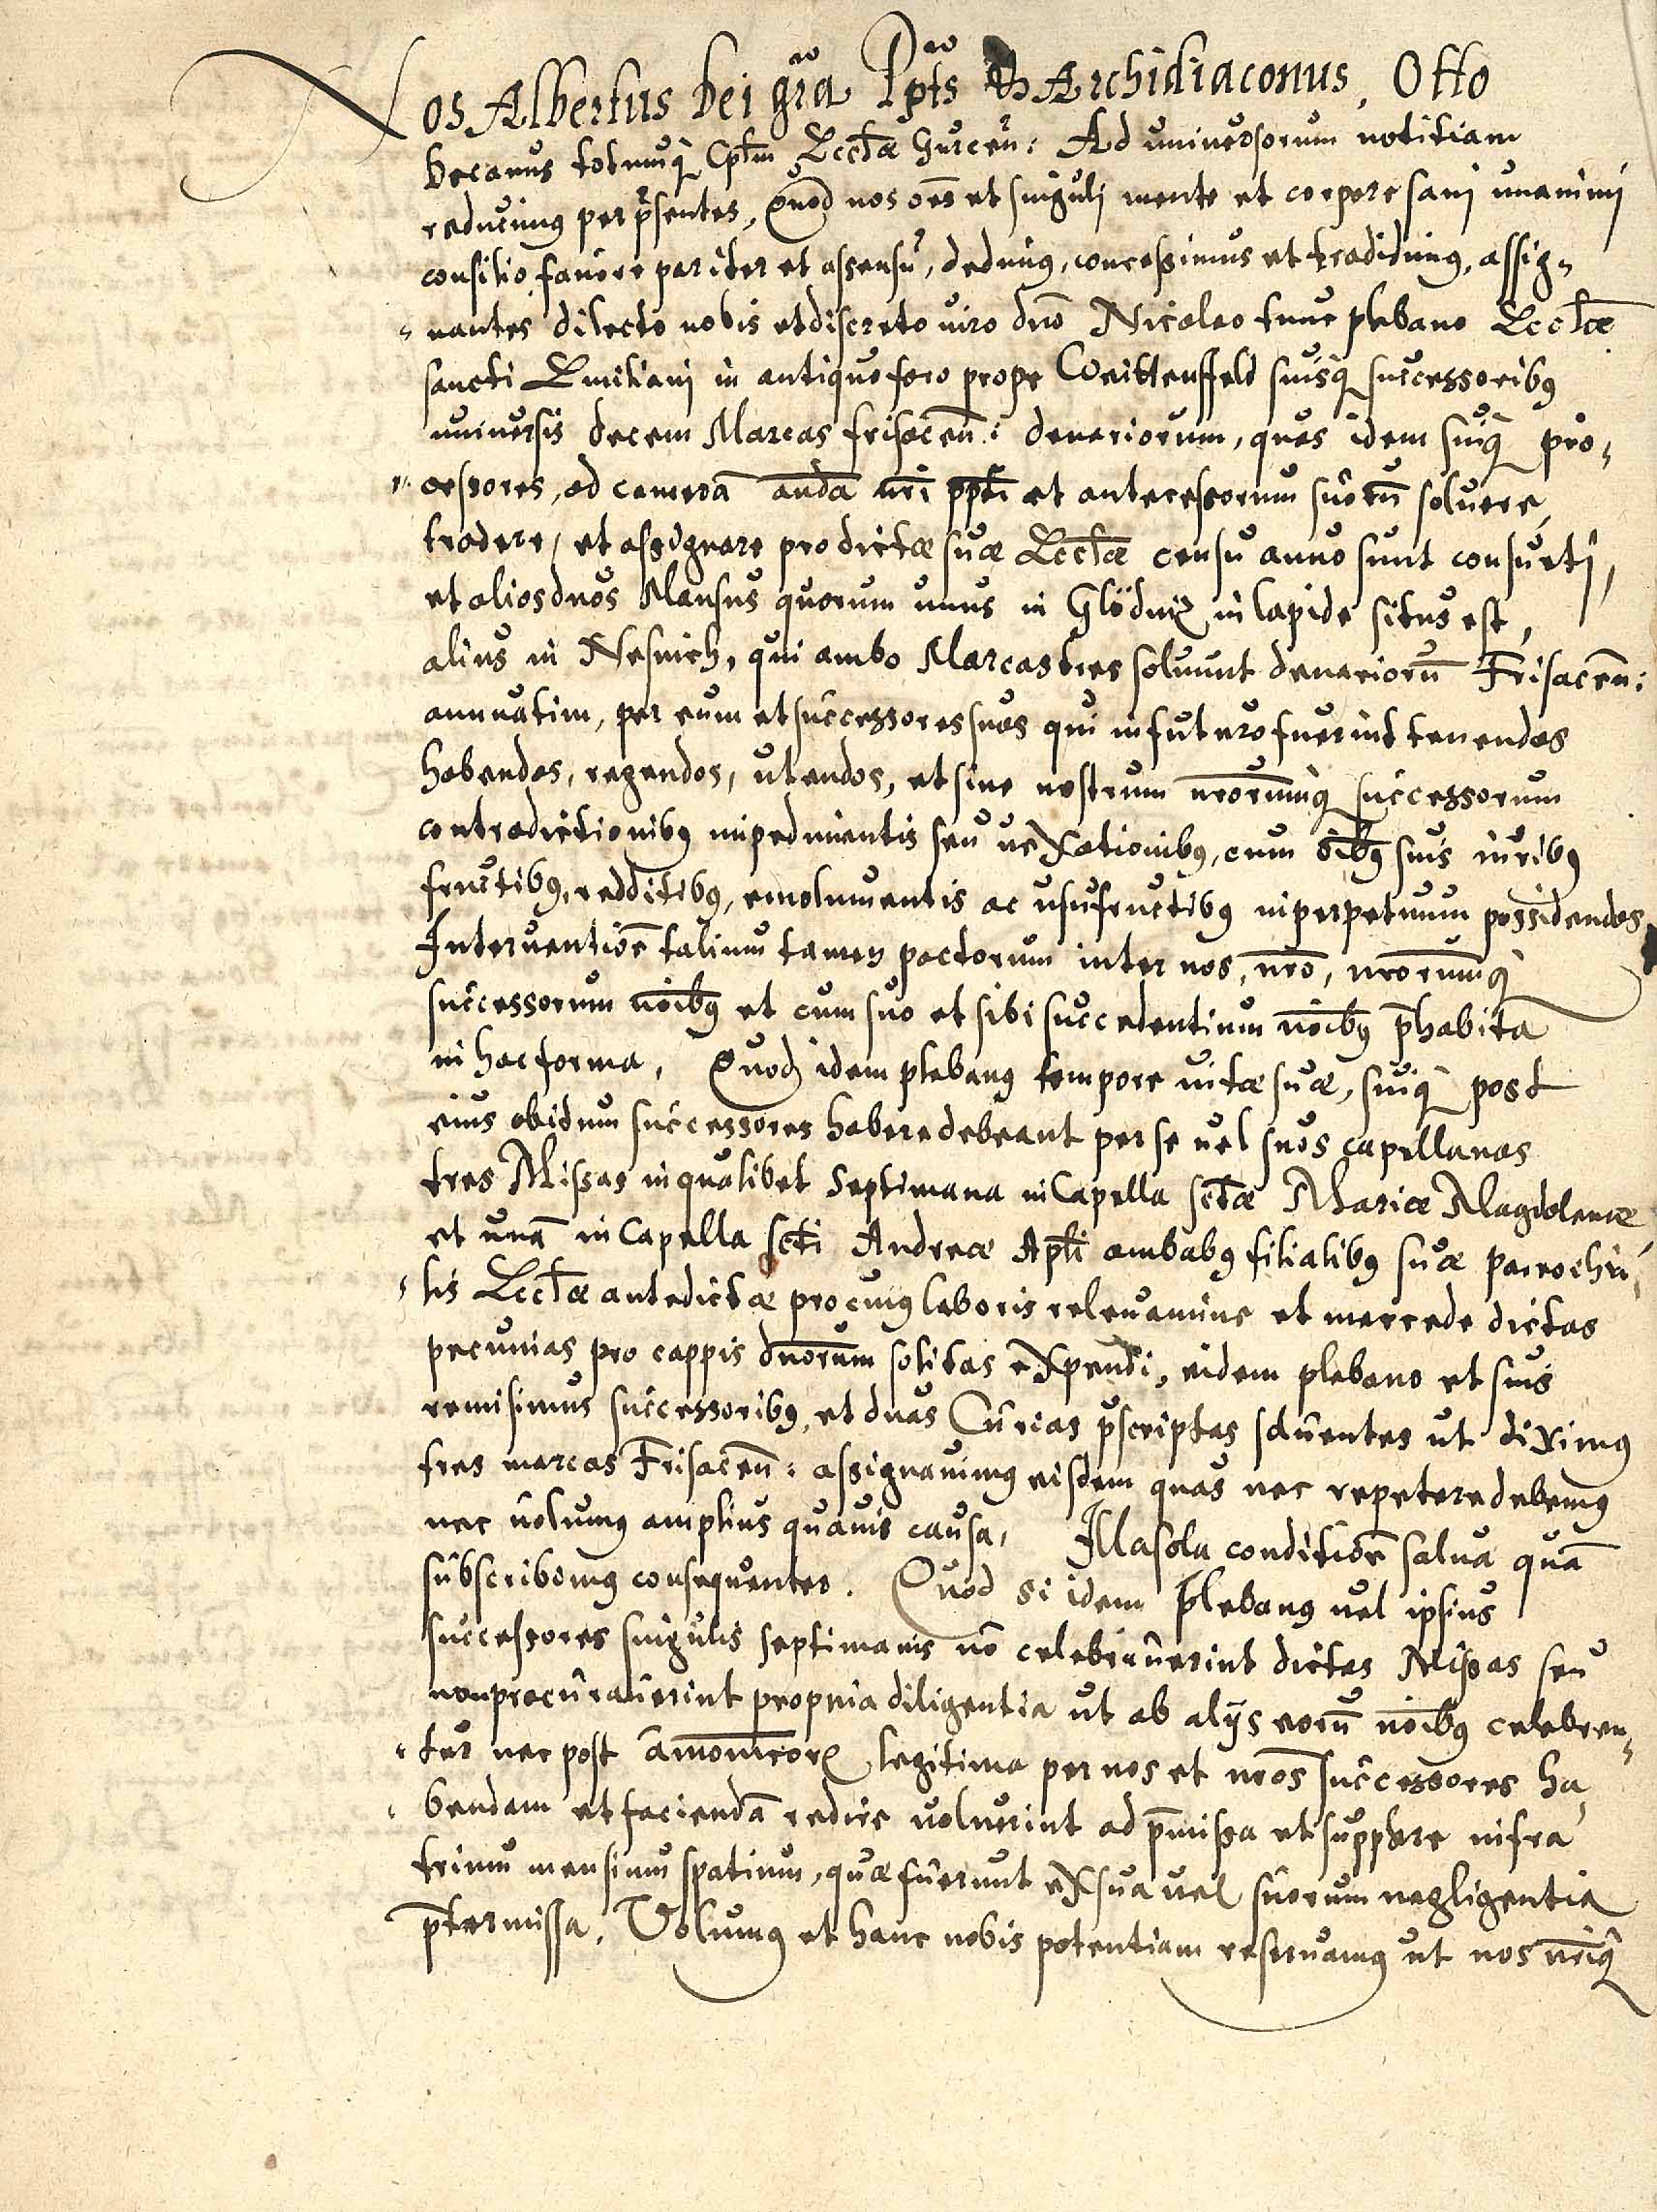 Nos Albertus Dei gr̃a Pp̃ts & Archidiaconus, Otto
Decanus totumq̀ Cptm̃ Ecctæ Gurceñ: Ad universorum notitiam
reducimus per p̃sentes, Quod nos oẽs et singuli mente et corpore sani unanimi
consilio favore pariter et assensu, dedimus, concessimus et tradidimus, assig=
=nantes dilecto nobis et discreto viro dño Nicolao tunc plebano Ecctæ
sancti Emiliani in antiquo foro prope Weittensfeld suisq̀ successoribus
universis decem Marcas frisaceñ: denariorum, quas idem suiq̀ prò=
=cessores, ad camerã andã nr̃i pp̃ti et antecessorum suorũ solvere,
tradere, et assignare pro dictæ suæ Ecctæ censu annuo sunt consueti,
et alios duos Mansus quorum unus in Glödniz in lapide situs est,
alius in Nesnich, qui ambo Marcas tres solvunt denariorũ Frisaceñ:
annuatim, per eum et successores suos qui in futuro fuerint tenendos
habendos, regendos, utendos, et sine nostrum nr̃orumq̀ successorum
contradictionibus impedimentis seu vexationibus, cum oĩbus suis iuribus
fructibus, redditibus, emolumentis ac usufructibus in perpetuum possidendos
Interventiõe talium tamen pactorum inter nos, nr̃o, nr̃orumq̀
successorum noĩbus et cum suo et sibi succedentium noĩbus p̃habita
in hac forma, Quod idem plebanus tempore vitæ suæ, suiq̀ post
eius obidum successores habere debeant per se vel suos capellanos
tres Missas in qualibet Septimana in Capella sctæ Mariæ Magdalenæ
et unã in Capella scti Andreæ Aptĩ ambabus filialibus suæ parrochia=
=lis Ecctæ antedictæ pro cuius laboris relevamine et mercede dictas
pecunias pro cappis dñorum solitas expendi, eidem plebano et suis
remisimus successoribus, et duas Curias p̃scriptas solventes ut diximus
tres marcas Frisaceñ: assignavimus eisdem quas nec repetere debemus
nec volumus amplius quavis causa, Illa sola conditiõe salva quã
subscribimus consequenter. Quod si idem plebanus vel ipsius
successores singulis septimanis nõ celebraverint dictas Missas seu
non procuraverint propria diligentia ut ab alijs eorũ noĩbus celebren=
=tur nec post amonic̃oẽ legitima per nos et nr̃os successores ha=
=bendam et faciendã redire voluerint ad p̃missa et supplere infra
trium mensium spatium, quæ fuerunt ex sua vel suorum negligentia
p̃termissa, Volumus et hanc nobis potentiam reservamus ut nos nr̃iq̀